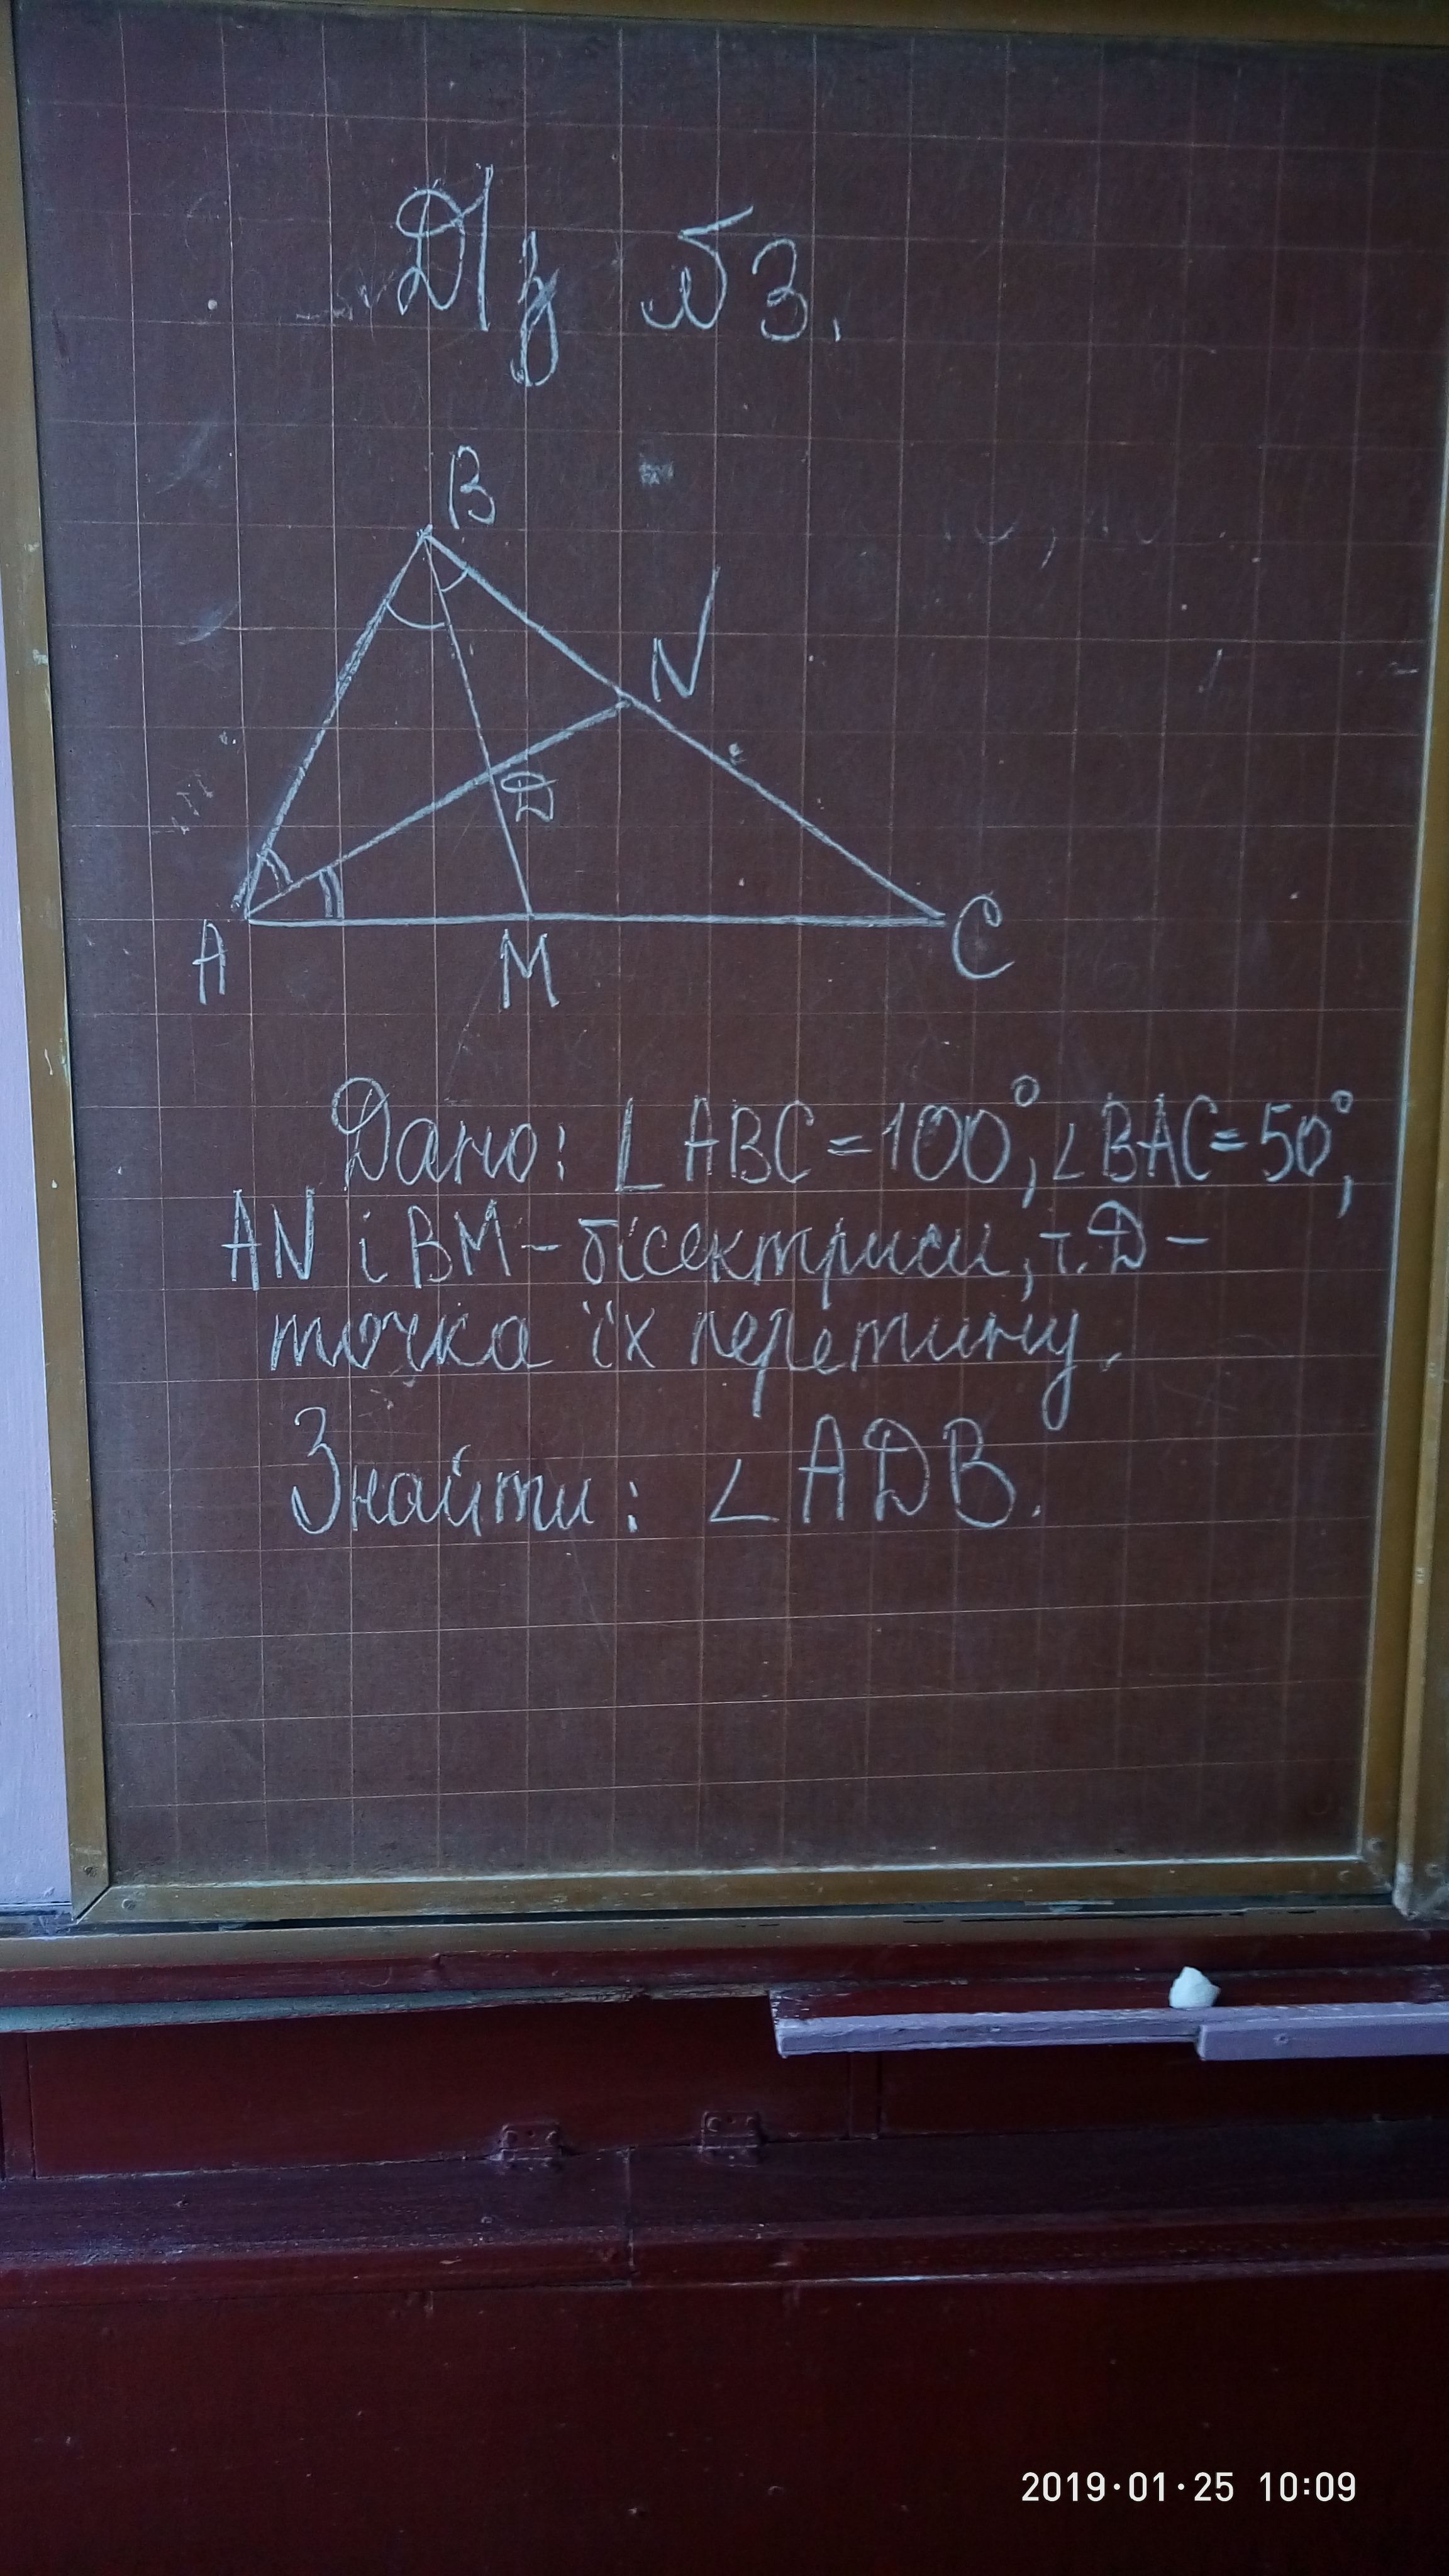 Д/з №3.
B
N
D
A
M
C
Дано: ∠ABC=100°, ∠BAC=50°,
AN і BM – бісектриси, т. D –
точка їх перетину.
Знайти: ∠ADB.
2019·01·25 10:09